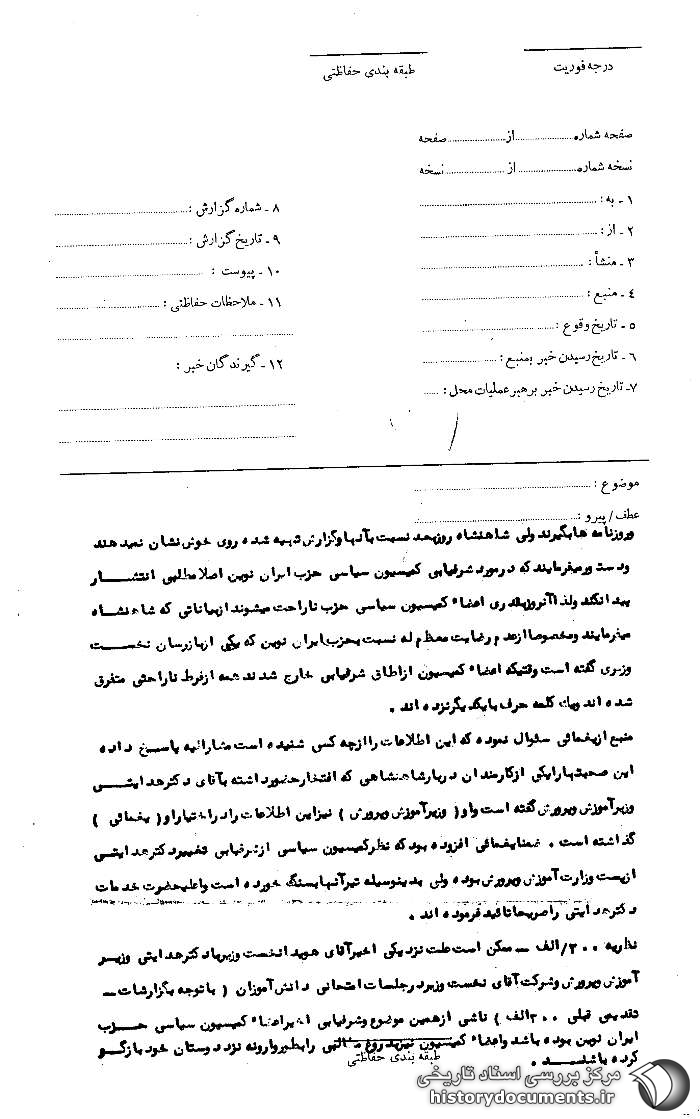 درجه فوریت
طبقه بندی حفاظتی
صفحه شماره ........ از ........ صفحه
نسخه شماره ........ از ........ نسخه
۱ ـ به :
۲ ـ از :
۳ ـ منشأ :
۴ ـ منبع :
۵ ـ تاریخ وقوع :
۶ ـ تاریخ رسیدن خبر بمنبع :
۷ـ تاریخ رسیدن خبر برهبر عملیات محل :
۸ ـ شماره گزارش :
۹ ـ تاریخ گزارش :
۱۰ ـ پیوست :
۱۱ ـ ملاحظات حفاظتی :
۱۲ ـ گیرندگان خبر :
موضوع :
عطف / پیرو :
وروزنامه ها بگیرند ولی شاهنشاه روزبعد نسبت بآنها وگزارش تهیه شده روی خوش نشان نمیدهند
ودستور میفرمایند که درمورد شرفیابی کمیسیون سیاسی حزب ایران نوین اصلا مطلبی انتشار
پیدا نکند ولذا آنروز بقدری اعضاء کمیسیون سیاسی حزب ناراحت میشوند از بیاناتی که شاهنشاه
میفرمایند ومخصوصا ازعدم رضایت معظم له نسبت بحزب ایران نوین که یکی از بازرسان نخست
وزیری گفته است وقتیکه اعضاء کمیسیون ازاطاق شرفیابی خارج شدند همه ازفرط ناراحتی متفرق
شده اند ویک کلمه حرف با یکدیگر نزده اند .
منبع ازیغمائی سئوال نموده که این اطلاعات را ازچه کسی شنیده است مشارالیه پاسخ داده
این صحبتها را یکی ازکارمندان دربار شاهنشاهی که افتخارحضور داشته بآقای دکترهدایتی
وزیرآموزش وپرورش گفته است واو ( وزیرآموزش وپرورش ) نیز این اطلاعات را دراختیاراو ( یغمائی )
گذاشته است . ضمنا یغمائی افزوده بود که نظر کمیسیون سیاسی ازشرفیابی تغییر دکترهدایتی
ازپست وزارت آموزش وپرورش بوده ولی بدینوسیله تیرآنها بسنگ خورده است واعلیحضرت خدمات
دکترهدایتی را صریحا تائید فرموده اند .
نظریه ۳۰۰/الف ـ ممکن است علت نزدیکی اخیر آقای هویدا نخست وزیر با دکترهدایتی وزیر
آموزش وپرورش وشرکت آقای نخست وزیر درجلسات امتحانی دانش آموزان ( با توجه بگزارشات ـ
تقدیمی قبلی ۳۰۰الف ) ناشی ازهمین موضوع وشرفیابی اخیر اعضاء کمیسیون سیاسی حزب
ایران نوین بوده باشد واعضاء کمیسیون نیز بدروغ مطالبی را بطور وارونه نزد دوستان خود بازگو
کرده باشند .
طبقه بندی حفاظتی
مرکز بررسی اسناد تاریخی
historydocuments.ir